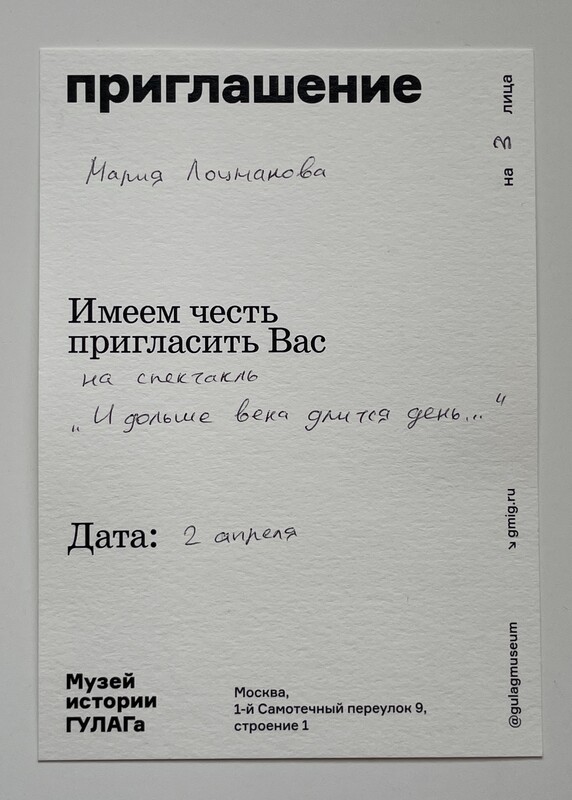 приглашение
на 3 лица
Мария Лоцманова
Имеем честь
пригласить Вас
на спектакль
„И дольше века длится день..."
Дата: 2 апреля
↘ gmig.ru
@gulagmuseum
Музей
истории
ГУЛАГа
Москва,
1-й Самотечный переулок 9,
строение 1